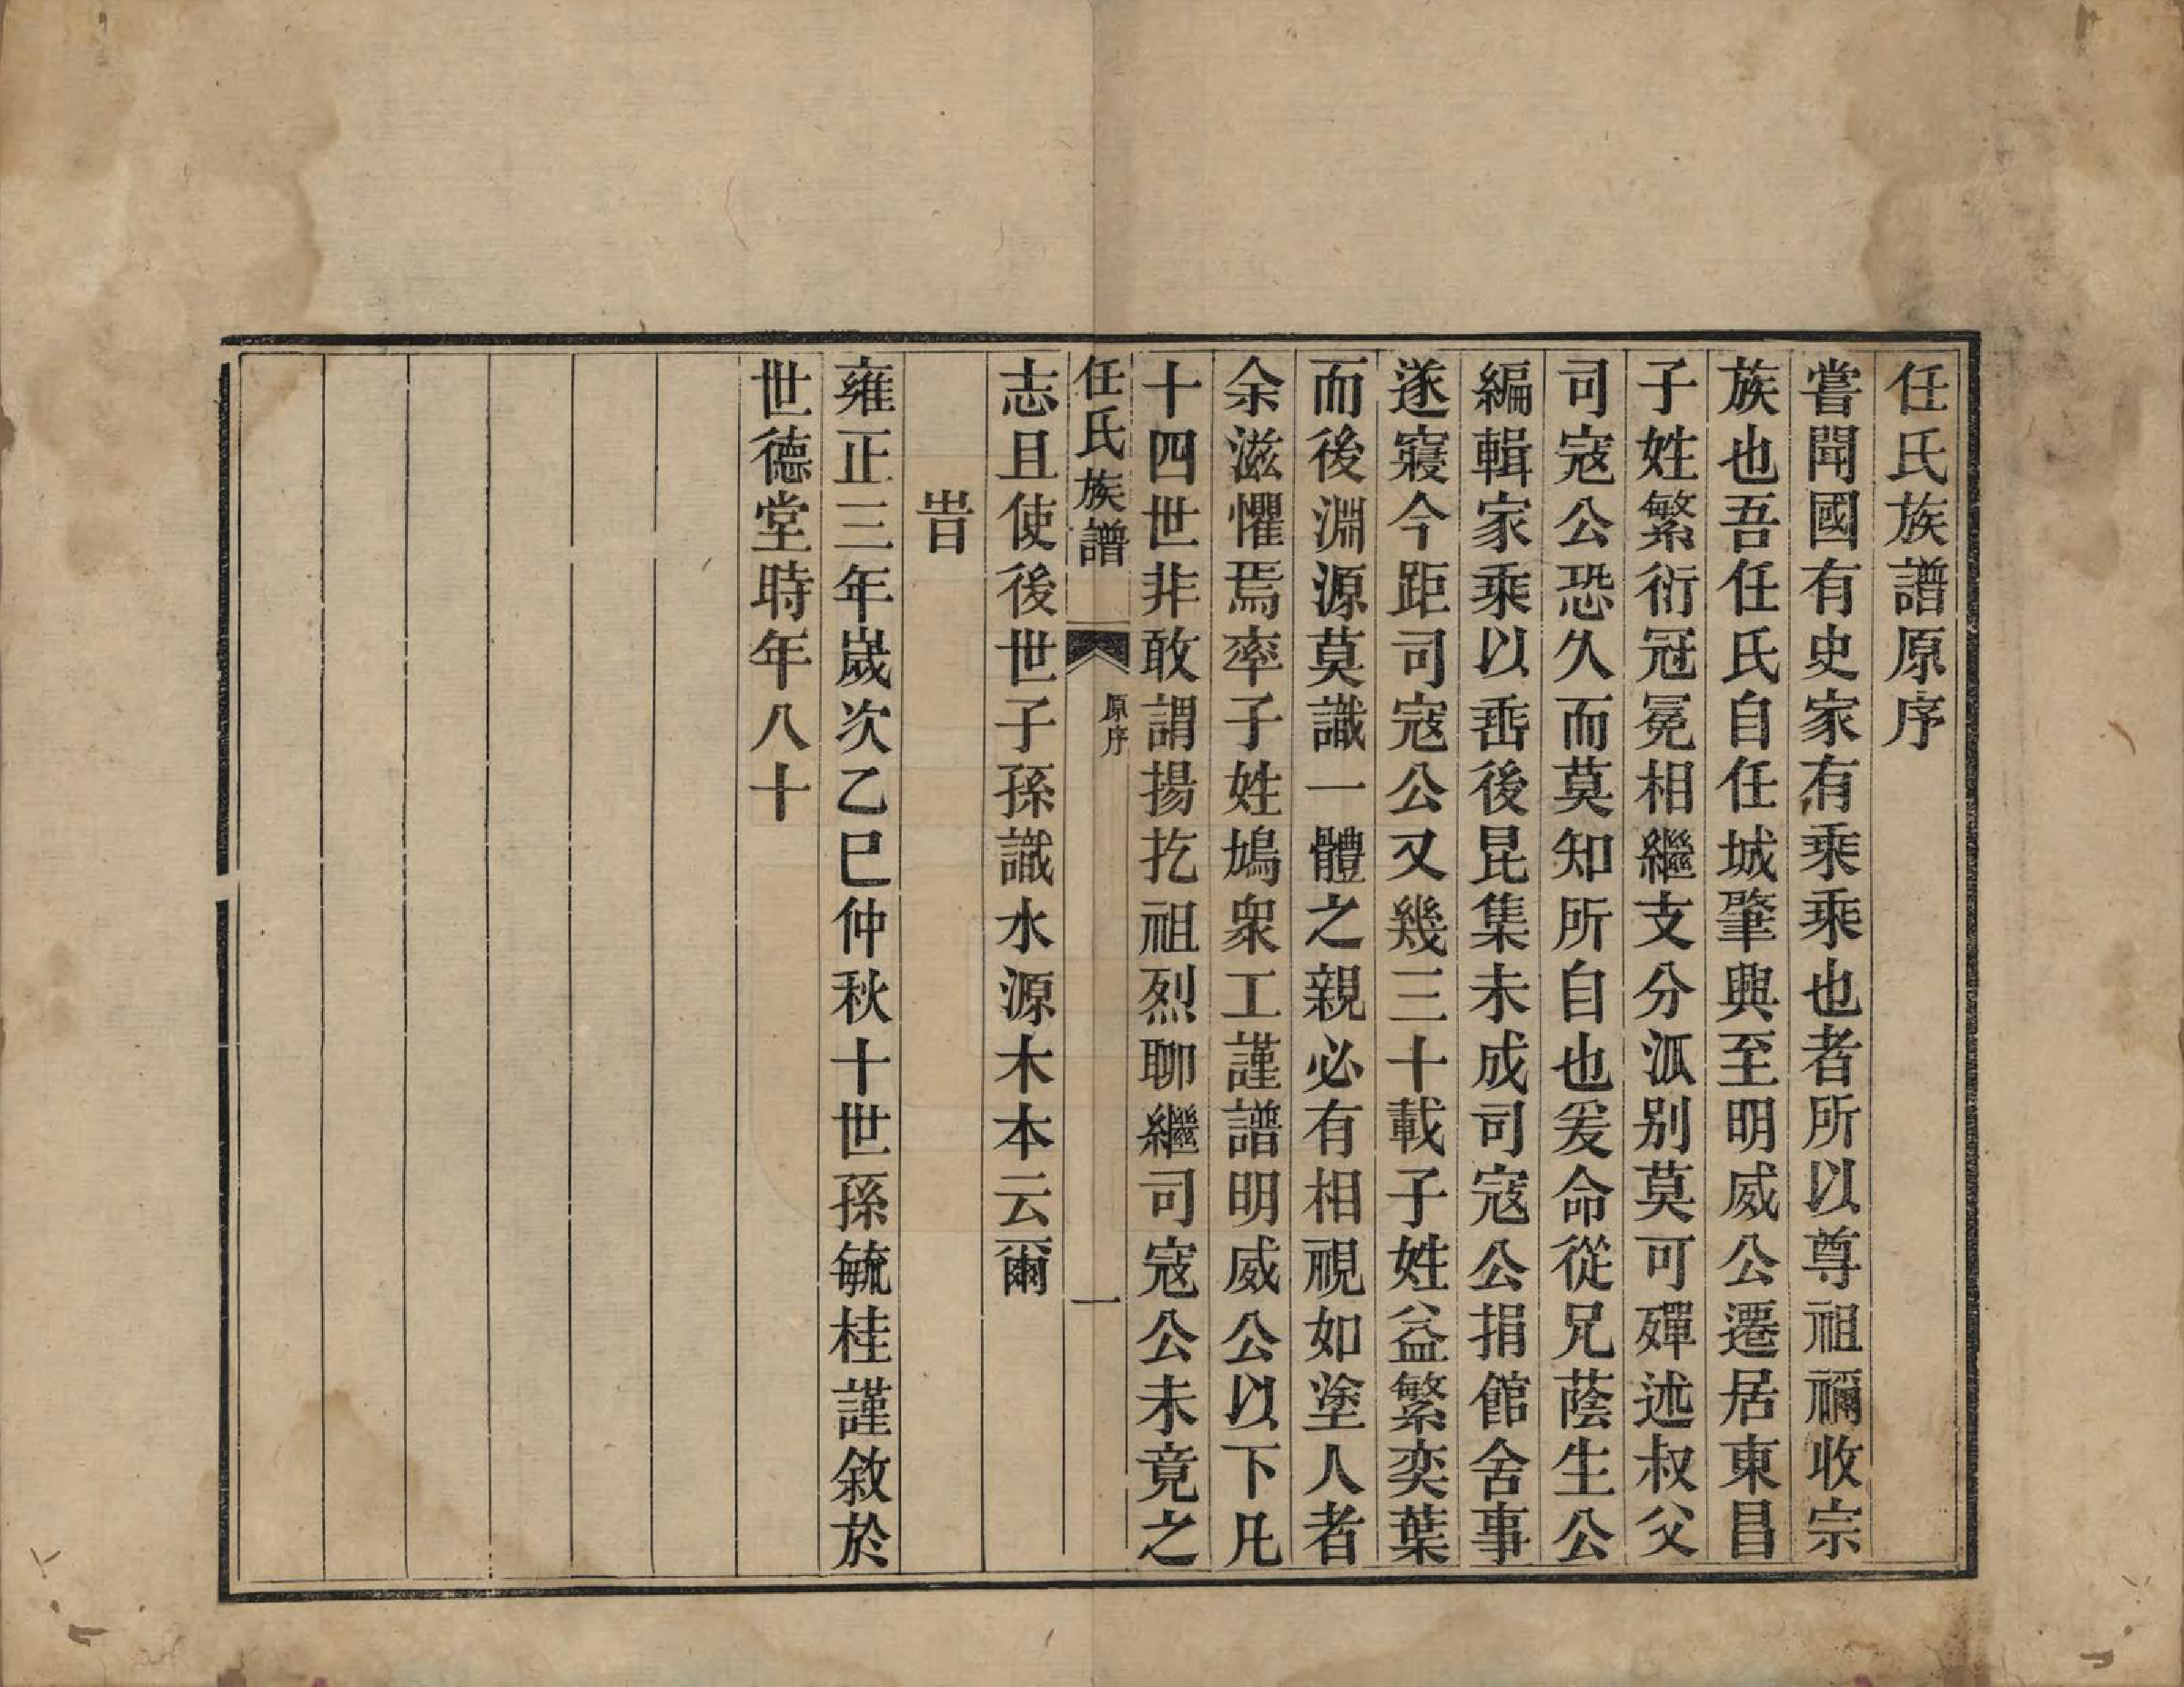 任氏族譜原序
嘗聞國有史家有乘乘也者所以尊祖禰收宗
族也吾任氏自任城肇興至明威公遷居東昌
子姓繁衍冠冕相繼支分泒別莫可殫述叔父
司寇公恐久而莫知所自也爰命從兄蔭生公
編輯家乘以垂後昆集未成司寇公捐館舍事
遂寢今距司寇公又幾三十載子姓益繁奕葉
而後淵源莫識一體之親必有相視如塗人者
余滋懼焉率子姓鳩衆工謹譜明威公以下凡
十四世非敢謂揚扢祖烈聊繼司寇公未竟之
任氏族譜
原序
一
志且使後世子孫識水源木本云爾
旹
雍正三年歲次乙巳仲秋十世孫毓桂謹敘於
世德堂時年八十